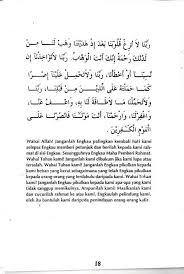 رَبَّنَا لَا تُزِغْ قُلُوبَنَا بَعْدَ إِذْ هَدَيْتَنَا وَهَبْ لَنَا مِنْ
لَدُنْكَ رَحْمَةً إِنَّكَ أَنْتَ الْوَهَّابُ. رَبَّنَا لَا تُؤَاخِذْنَا إِنْ
نَسِينَا أَوْ أَخْطَأْنَا. رَبَّنَا وَلَا تَحْمِلْ عَلَيْنَا إِصْرًا
كَمَا حَمَلْتَهُ عَلَى الَّذِينَ مِنْ قَبْلِنَا. رَبَّنَا
وَلَا تُحَمِّلْنَا مَا لَا طَاقَةَ لَنَا بِهِ وَاعْفُ عَنَّا وَاغْفِرْ
لَنَا وَارْحَمْنَا أَنْتَ مَوْلَانَا فَانْصُرْنَا عَلَى
الْقَوْمِ الْكَفِرِينَ.
Wahai Allah! Janganlah Engkau palingkan semula hati kami
selepas Engkau memberi petunjuk dan berilah kepada kami rah-
mat di sisi Engkau. Sesungguhnya Engkau Maha Pemberi Rahmat.
Wahai Tuhan kami! Janganlah Engkau pikulkan kami jika kami lupa atau
tersalah. Wahai Tuhan kami! Janganlah Engkau pikulkan kepada kami
beban sepertimana kepada orang sebelum kami. Wahai Tuhan
kami! Janganlah Engkau pikulkan kepada kami apa-apa yang kami
tidak sanggup memikulnya. Ampunilah kami! Maafkanlah kami
dan cucurilah rahmat kepada kami. Engkaulah pelindung kami,
oleh itu bantulah kami daripada penindasan orang-orang kafir.
18